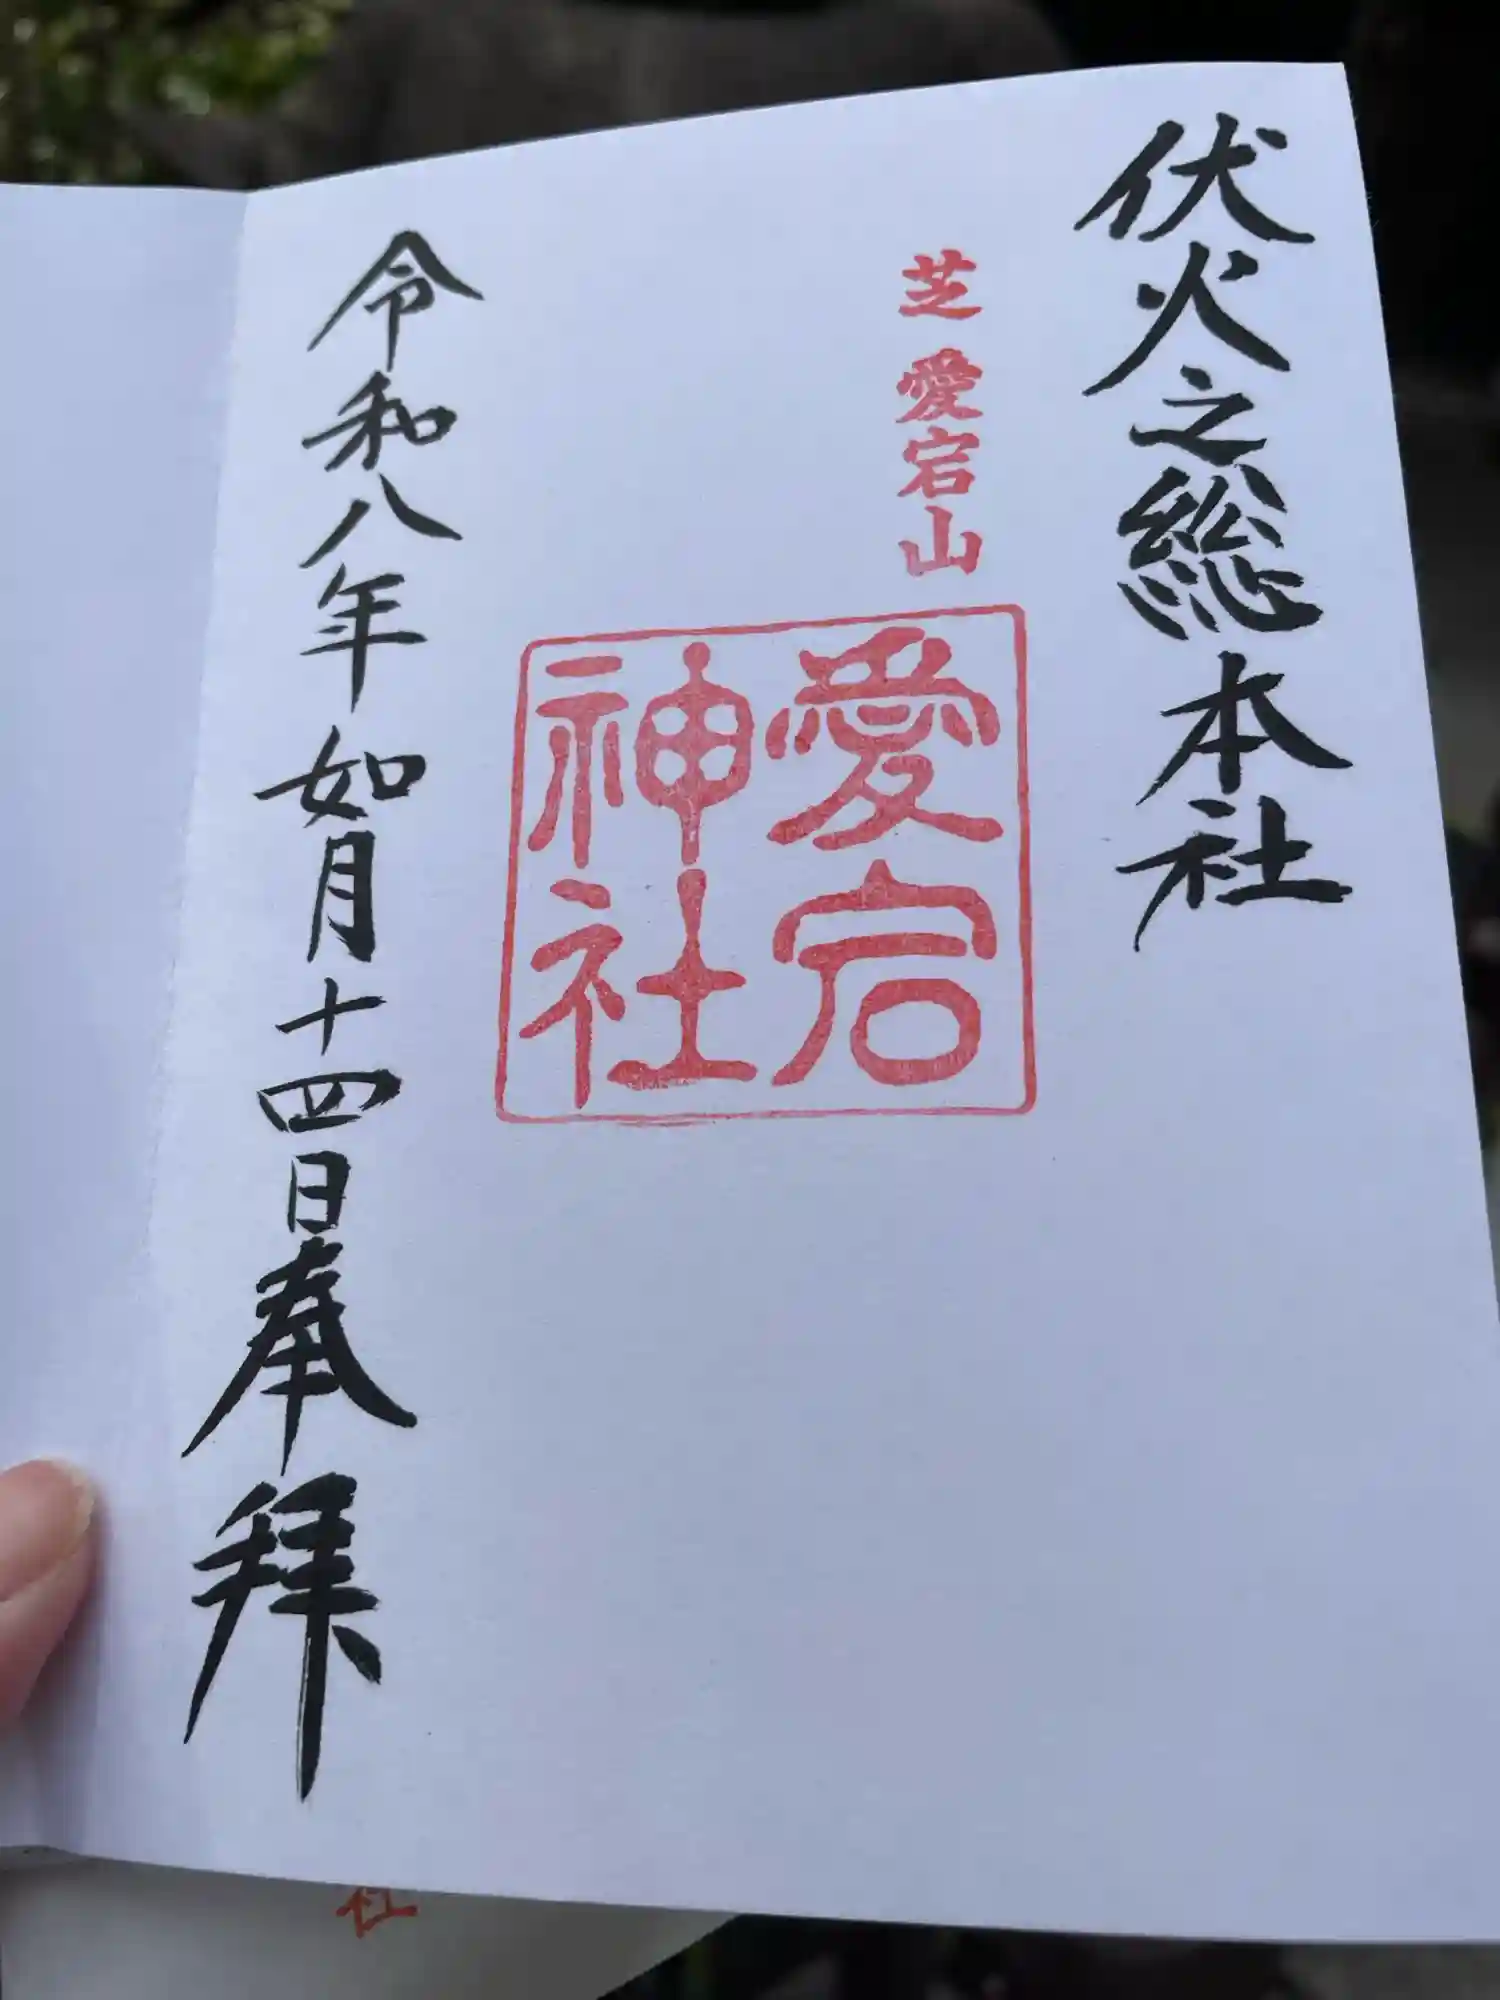 伏火之総本社
芝 愛宕山
愛宕
神社
令和八年 如月十四日奉拝
社